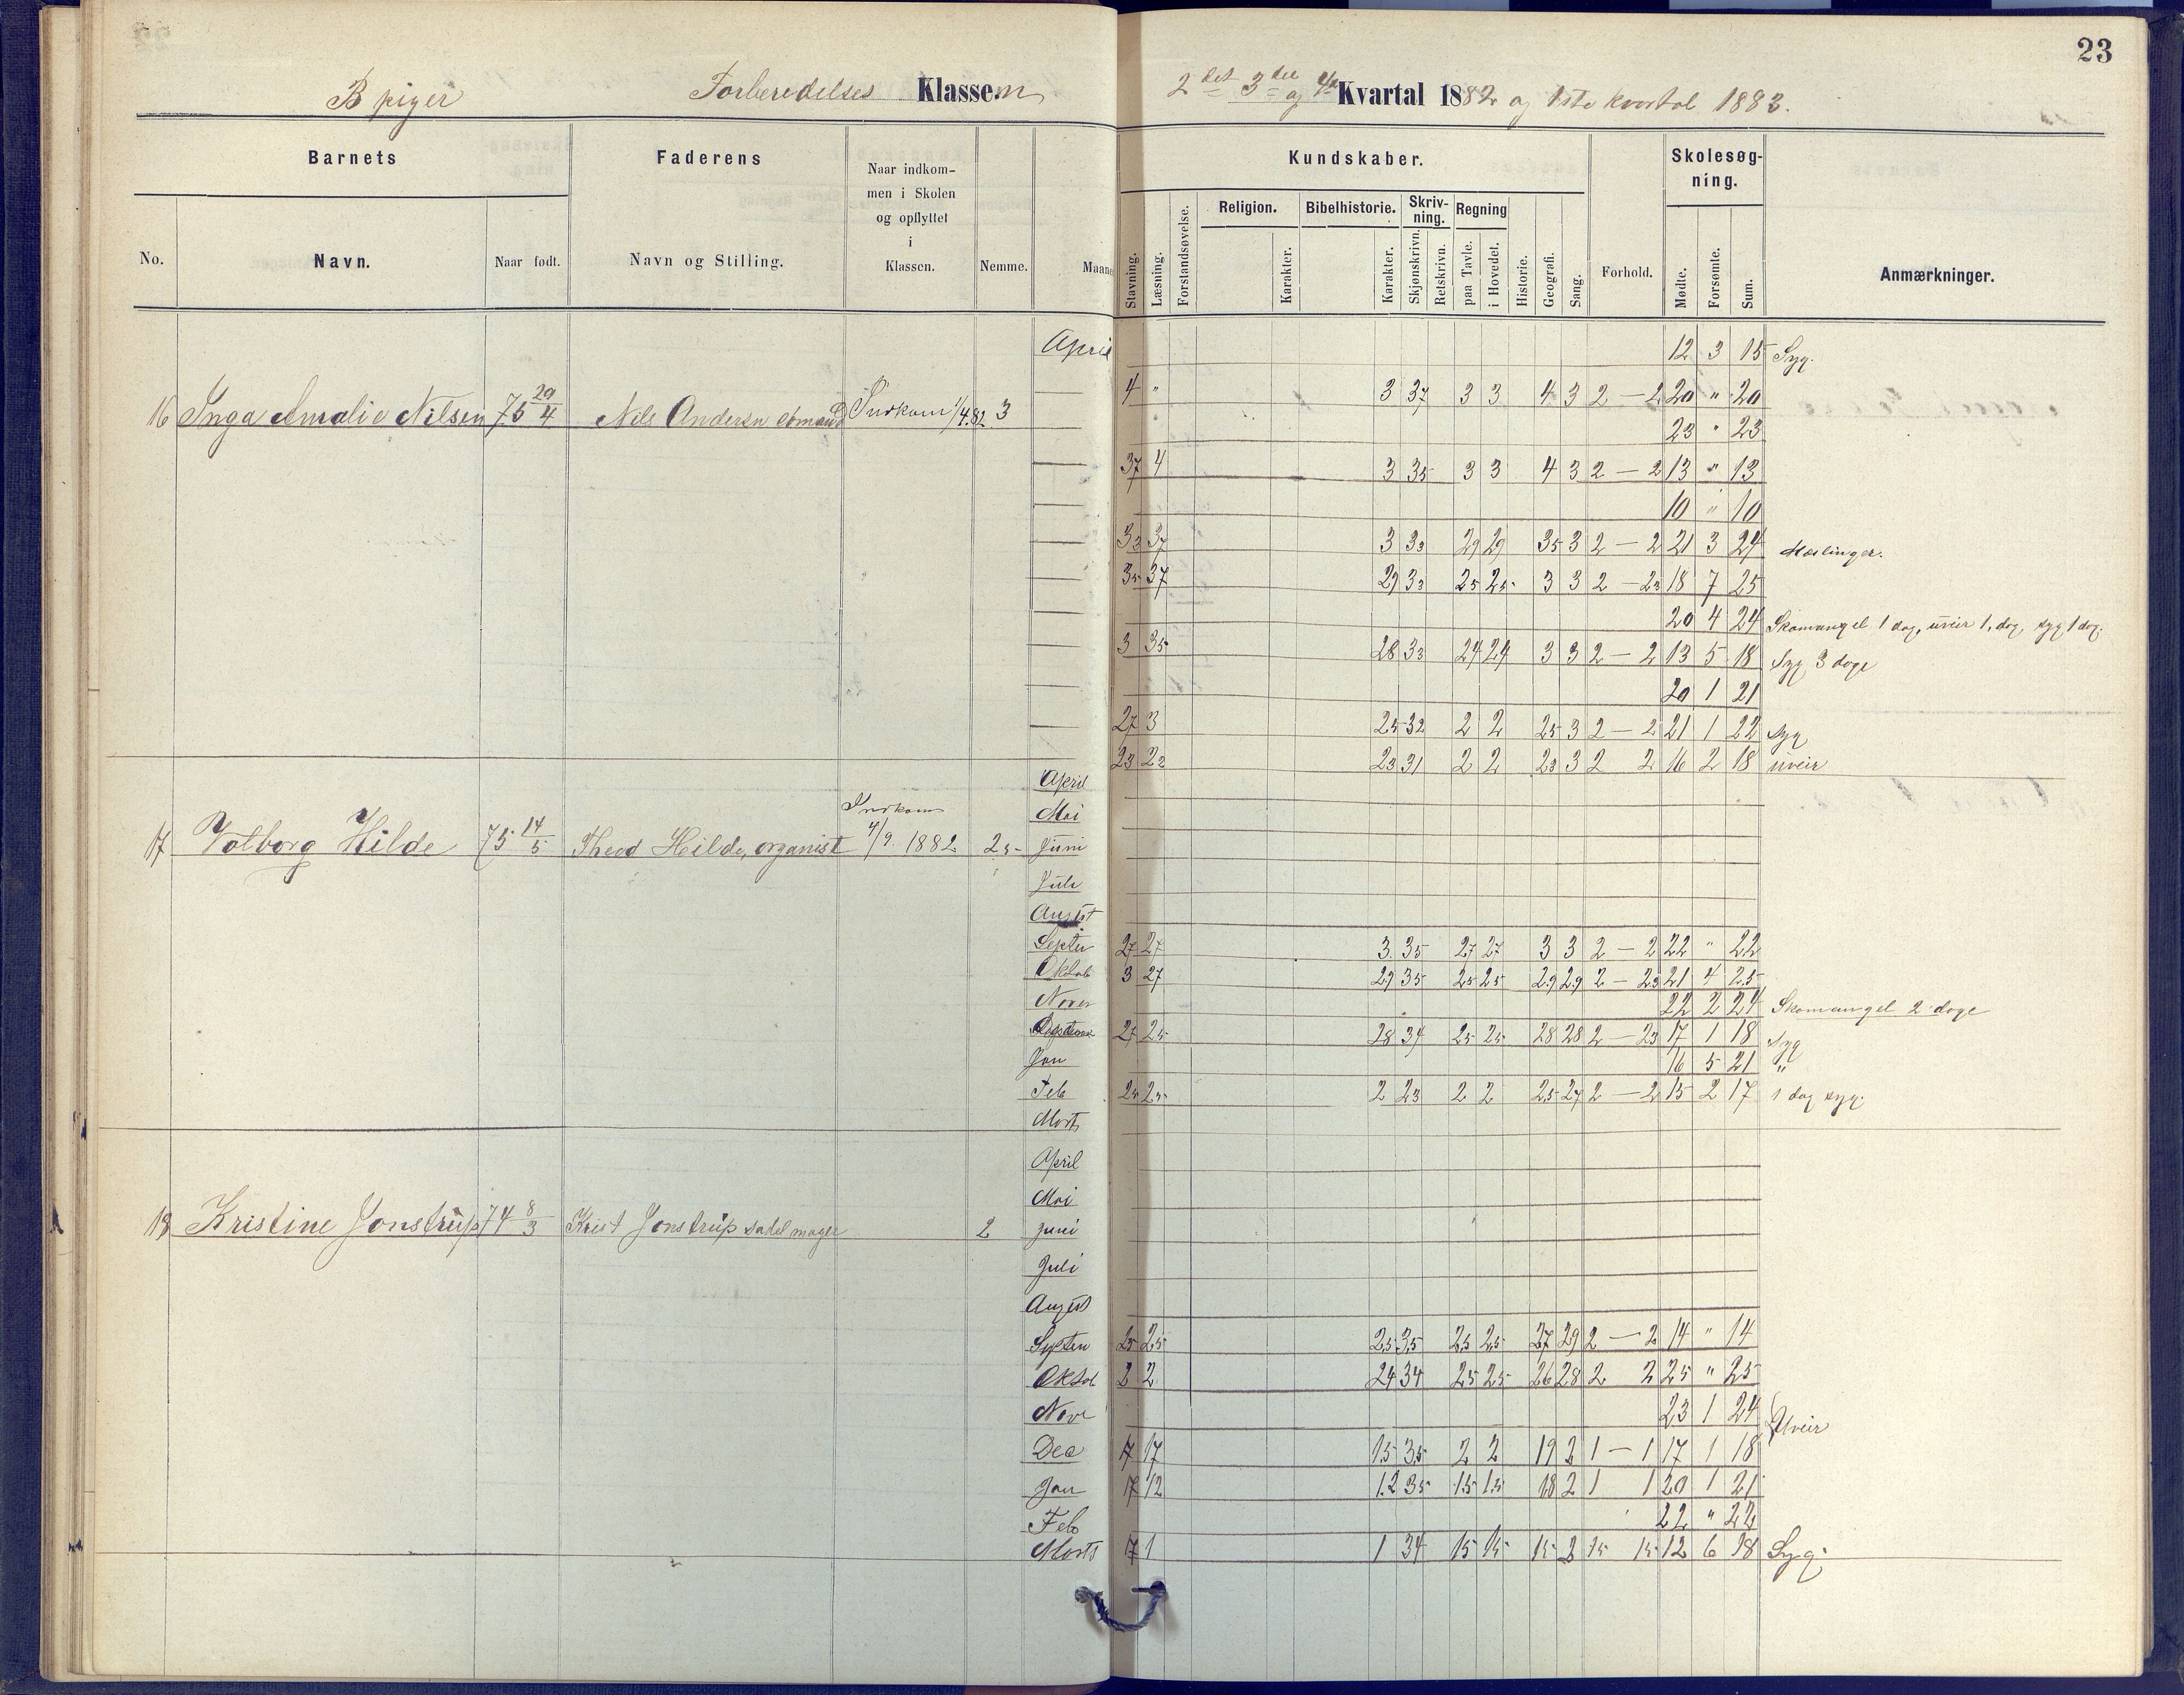 23
B piger Forberedelses Klassen 2det 3die og 4de Kvartal 1882 og 1ste kvartal 1883.
Barnets Faderens Naar indkom- Kundskaber. Skolesøg-
men i Skolen ning.
og opflyttet Religion. Bibelhistorie. Skriv- Regning
i ning.
No. Navn. Naar født. Navn og Stilling. Klassen. Nemme. Maane
Stavning. Læsning. Forstandsøvelse. Karakter. Karakter. Skjønskrivn. Retskrivn. paa Tavle. i Hovedet. Historie. Geografi. Sang. Forhold. Mødte. Forsømte. Sum. Anmærkninger.
April 12 3 15 Syg.
4 " 3 37 3 3 4 3 2 — 2 20 " 20
16 Inga Amalie Nilsen 75 29/4 Nils Andersn Indkom 1/4.82 3 23 " 23
37 4 3 35 3 3 4 3 2 — 2 13 " 13
10 " 10
33 37 3 33 29 29 35 3 2 — 2 21 3 24 Mæslinger.
35 37 29 33 25 25 3 3 2 — 23 18 7 25
20 4 24 Skomangel 1 dag, uveir 1, dag, syg 1 dag.
3 35 28 33 24 24 3 3 2 — 2 13 5 18 Syg 3 dage
20 1 21
27 3 25 32 2 2 25 3 2 — 2 21 1 22 Syg
23 22 23 31 2 2 23 3 2 2 16 2 18 uveir
April
Mai
17 Valborg Hilde 75 14/5 Theod Hilde, organist Indkom 4/9. 1882 25 Juni
Juli
August
Septbr 27 27 3 35 27 27 3 3 2 — 2 22 " 22
Oktob 3 27 29 35 25 25 29 29 2 — 23 21 4 25
Novbr 22 2 24 Skomangel 2 dage
27 25 28 34 25 25 28 28 2 — 23 17 1 18 Syg
Jan 16 5 21 "
Feb 25 25 2 23 2 2 25 27 2 — 2 15 2 17 1 dag syg.
Marts
April
Mai
18 Kristine Jonstrup 74 8/3 Krist Jonstrup sadelmager 2 Juni
Juli
August
Septen 25 25 25 35 25 25 27 29 2 — 2 14 " 14
Oktob 2 2 24 34 25 25 26 28 2 2 25 " 25
Nove 23 1 24 Uveir
Dec 17 17 15 35 2 2 19 2 1 — 1 17 1 18
Jan 17 12 12 35 15 15 18 2 1 1 20 1 21
Feb 22 " 22
Marts 17 1 1 34 15 15 15 2 15 15 12 6 18 Syg.